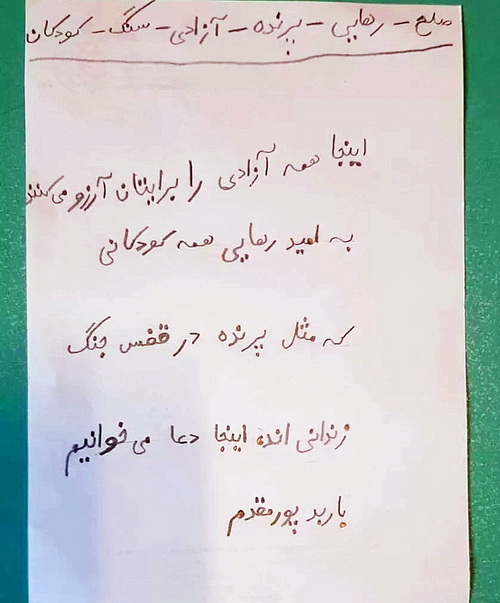 صلح - رهایی - پرنده - آزادی - سنگ - کودکان
اینجا همه آزادی را برایتان آرزو می‌کنند
به امید رهایی همه کودکانی
که مثل پرنده در قفس جنگ
زندانی اند، اینجا دعا می‌خوانیم
باربد پورمقدم